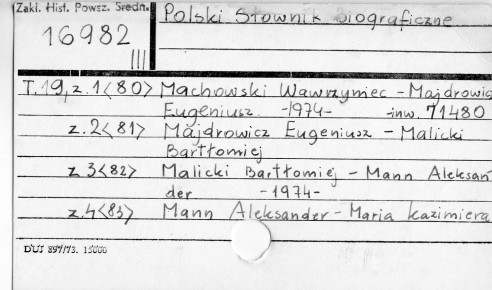 Zakł. Hist. Powsz. Średn.
Polski Słownik biograficzne
16982
III
T.19, z.1<80> Machowski Wawrzyniec - Majdrowicz
Eugeniusz. -1974- -inw. 71480
z.2<81> Majdrowicz Eugeniusz - Malicki
Bartłomiej
z 3<82> Malicki Bartłomiej - Mann Aleksan
der -1974-
z.4<83> Mann Aleksander - Maria Kazimiera
DUJ 897/73. 15000